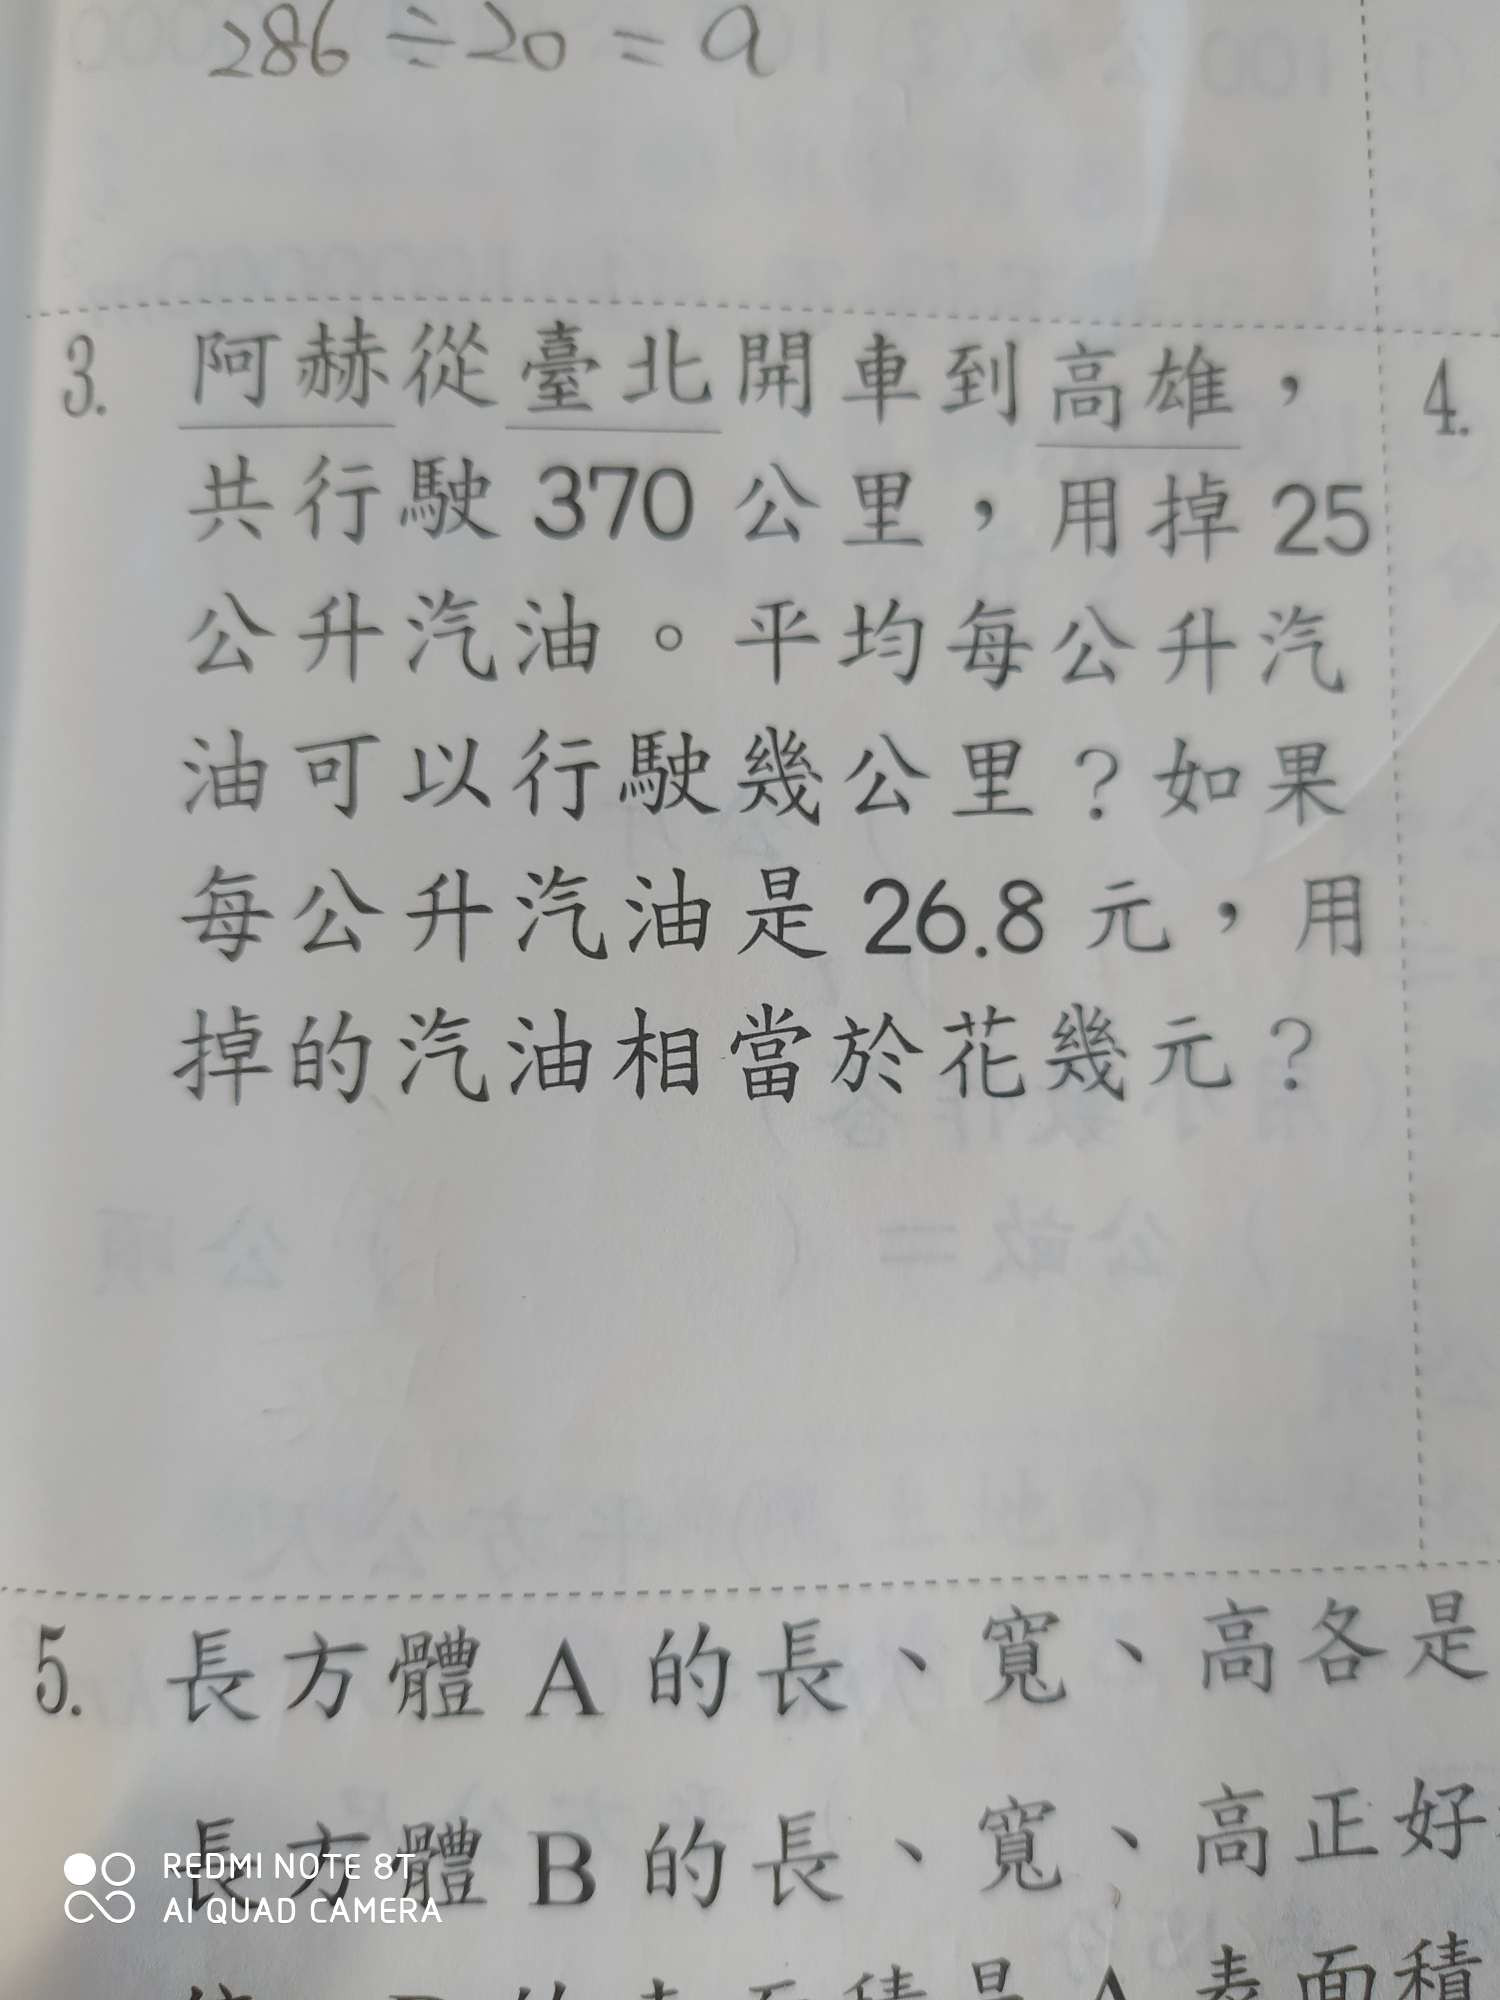 286÷20=a
3. 阿赫從臺北開車到高雄，
共行駛 370 公里，用掉 25
公升汽油。平均每公升汽
油可以行駛幾公里？如果
每公升汽油是 26.8 元，用
掉的汽油相當於花幾元？
4.
5. 長方體 A 的長、寬、高各是
長方體 B 的長、寬、高正好
表面積
REDMI NOTE 8T
AI QUAD CAMERA